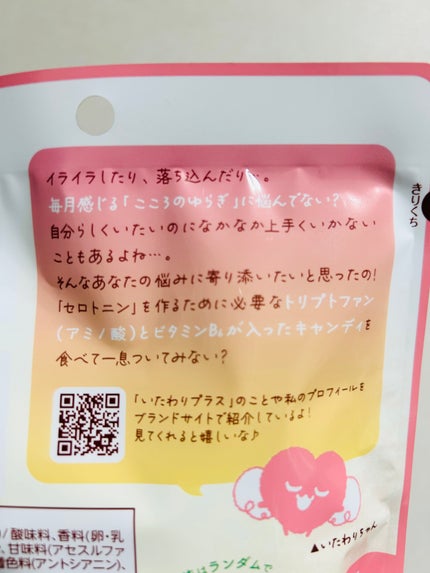 イライラしたり、落ち込んだり…。
毎月感じる「こころのゆらぎ」に悩んでない?
自分らしくいたいのになかなか上手くいかない
こともあるよね…。
そんなあなたの悩みに寄り添いたいと思ったの!
「セロトニン」を作るために必要なトリプトファン
(アミノ酸)とビタミンB6が入ったキャンディを
食べて一息ついてみない?
「いたわりプラス」のことや私のプロフィールを
ブランドサイトで紹介しているよ!
見てくれると嬉しいな♪
きりくち
▲いたわりちゃん
/酸味料、香料(卵・乳
、甘味料(アセスルファ
色料(アントシアニン)、
はランダムで